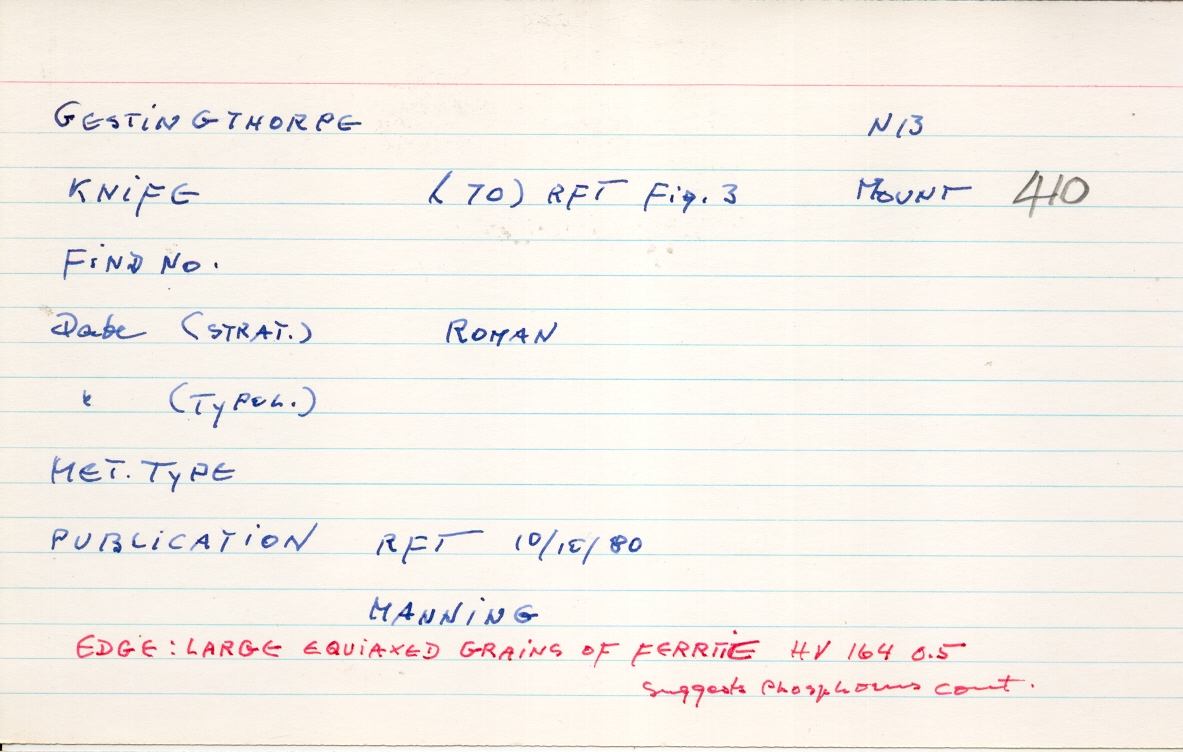 GESTINGTHORPE N13
KNIFE (70) RFT Fig. 3 MOUNT 410
FIND NO.
Date (STRAT.) ROMAN
" (TYPOL.)
MET. TYPE
PUBLICATION RFT 80
MANNING
EDGE: LARGE EQUIAXED GRAINS OF FERRITE HV 164 0.5
suggests Phosphorus cont.